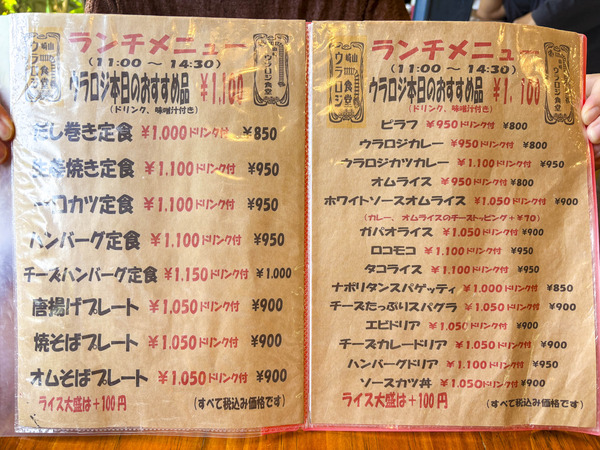 ランチメニュー
(11:00 ～ 14:30)
ウラロジ本日のおすすめ品 ¥1,100
(ドリンク、味噌汁付き)
だし巻き定食 ¥1.000ドリンク付 ¥850
生姜焼き定食 ¥1.100ドリンク付 ¥950
一口カツ定食 ¥1.100ドリンク付 ¥950
ハンバーグ定食 ¥1.100ドリンク付 ¥950
チーズハンバーグ定食 ¥1.150ドリンク付 ¥1.000
唐揚げプレート ¥1.050ドリンク付 ¥900
焼そばプレート ¥1.050ドリンク付 ¥900
オムそばプレート ¥1.050ドリンク付 ¥900
ライス大盛は＋100円 (すべて税込み価格です)
ランチメニュー
(11:00 ～ 14:30)
ウラロジ本日のおすすめ品 ¥1,100
(ドリンク、味噌汁付き)
ピラフ ¥950ドリンク付 ¥800
ウラロジカレー ¥950ドリンク付 ¥800
ウラロジカツカレー ¥1.100ドリンク付 ¥950
オムライス ¥950ドリンク付 ¥800
ホワイトソースオムライス ¥1.050ドリンク付 ¥900
(カレー、オムライスのチーズトッピング＋¥70)
ガパオライス ¥1.050ドリンク付 ¥900
ロコモコ ¥1.100ドリンク付 ¥950
タコライス ¥1.100ドリンク付 ¥950
ナポリタンスパゲッティ ¥1.000ドリンク付 ¥850
チーズたっぷりスパグラ ¥1.050ドリンク付 ¥900
エビドリア ¥1.050ドリンク付 ¥900
チーズカレードリア ¥1.050ドリンク付 ¥900
ハンバーグドリア ¥1.100ドリンク付 ¥950
ソースカツ丼 ¥1.050ドリンク付 ¥900
ライス大盛は＋100円 (すべて税込み価格です)